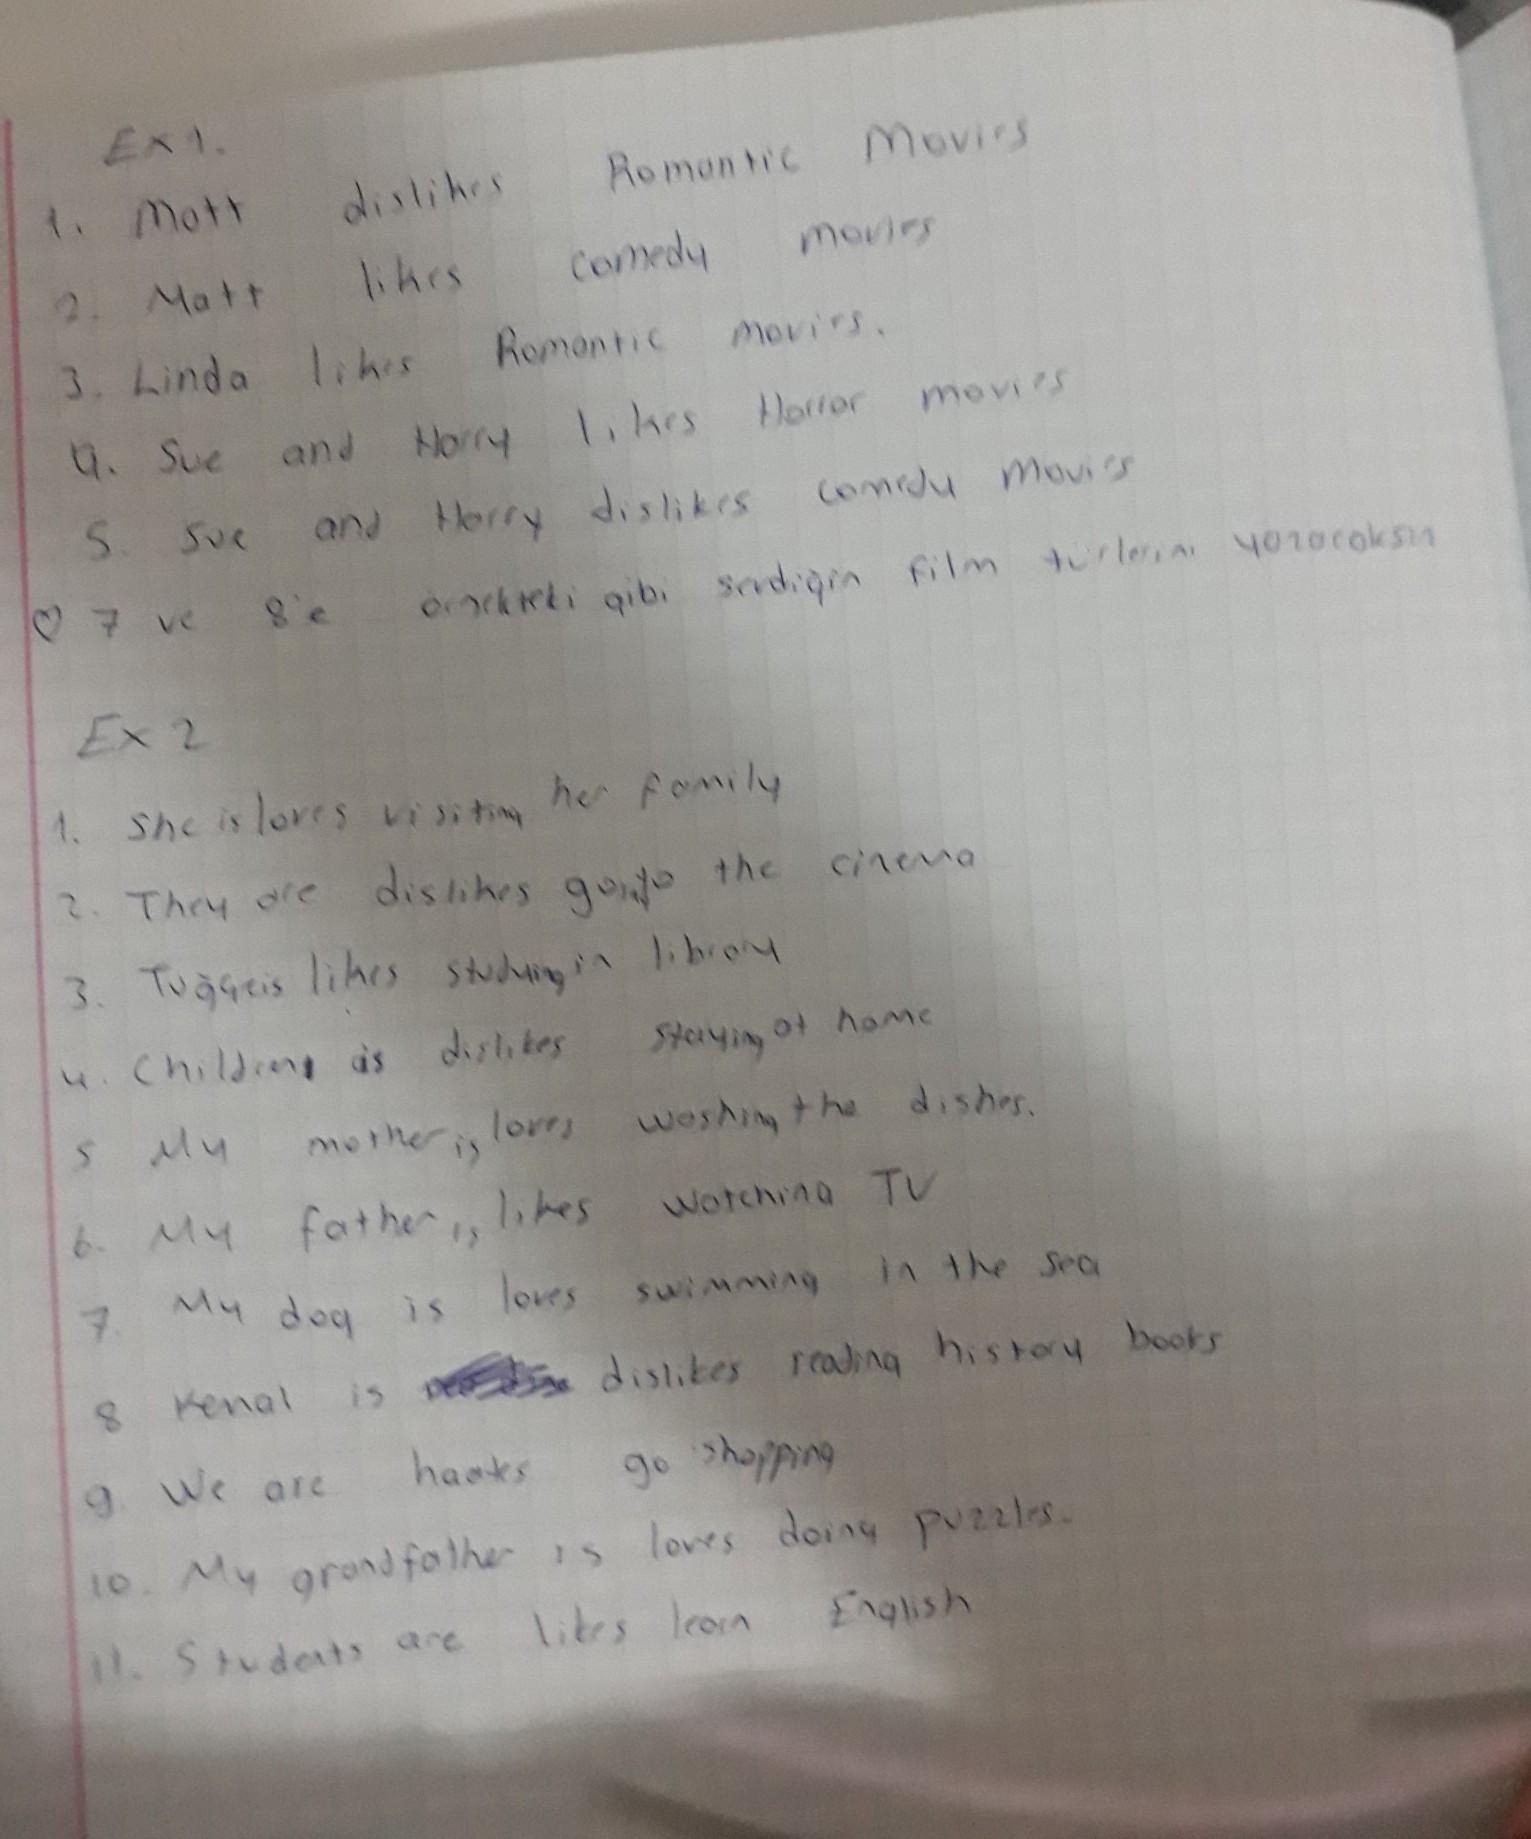 Ex1.
1. Matt dislikes Romantic Movies
2. Matt likes comedy movies
3. Linda likes Romantic movies.
4. Sue and Harry likes Horror movies
5. Sue and Harry dislikes comedy Movies
♡ 7 ve 8'e örnekteki gibi sevdiğin film türlerini yazacaksın
Ex 2
1. She is loves visiting her family
2. They are dislikes going to the cinema
3. Tuğçe is likes studying in library
4. Children is dislikes staying at home
5 My mother is loves washing the dishes.
6. My father is likes watching TV
7. My dog is loves swimming in the sea
8 Kenal is dislikes reading history books
9. We are go shopping
10. My grandfather is loves doing puzzles.
11. Students are likes learn English